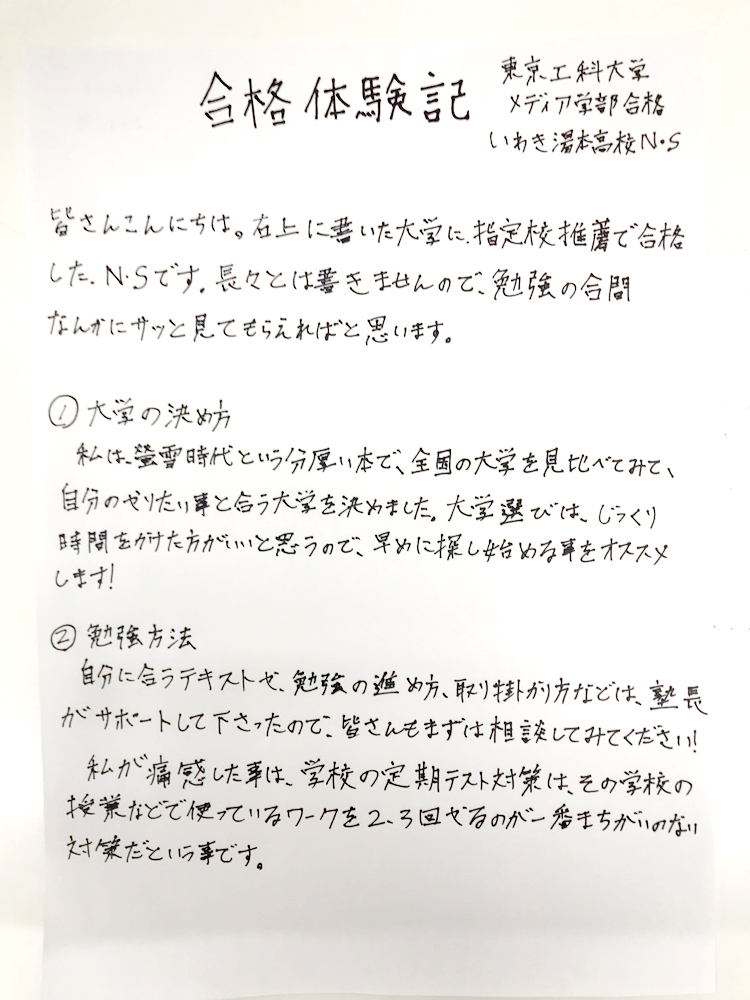 合格体験記
東京工科大学
メディア学部合格
いわき湯本高校N・S
皆さんこんにちは。右上に書いた大学に、指定校推薦で合格
した、N・Sです。長々とは書きませんので、勉強の合間
なんかにサッと見てもらえればと思います。
① 大学の決め方
私は、螢雪時代という分厚い本で、全国の大学を見比べてみて、
自分のやりたい事と合う大学を決めました。大学選びは、じっくり
時間をかけた方がいいと思うので、早めに探し始める事をオススメ
します!
② 勉強方法
自分に合うテキストや、勉強の進め方、取り掛かり方などは、塾長
がサポートして下さったので、皆さんもまずは相談してみてください!
私が痛感した事は、学校の定期テスト対策は、その学校の
授業などで使っているワークを2、3回やるのが一番まちがいのない
対策だという事です。